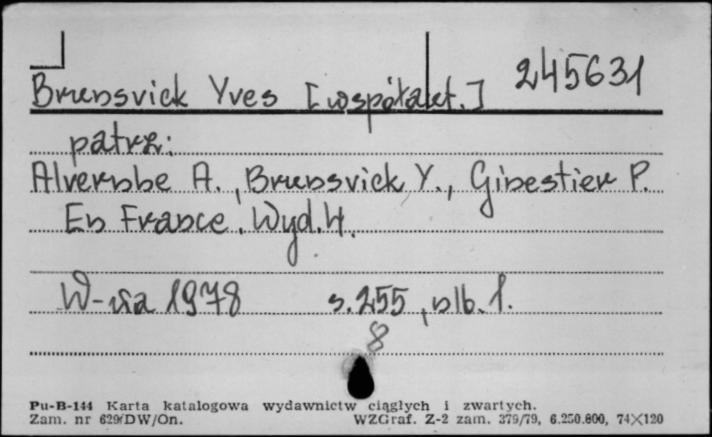 Brunsvick Yves [współaut.] 245631
patrz:
Alvernhe A., Brunsvick Y., Ginestier P.
En France. Wyd. 4.
W-wa 1978 s. 255, nlb. 1.
8
Pu-B-144 Karta katalogowa wydawnictw ciągłych i zwartych.
Zam. nr 629/DW/On. WZGraf. Z-2 zam. 379/79, 6.250.800, 74×120